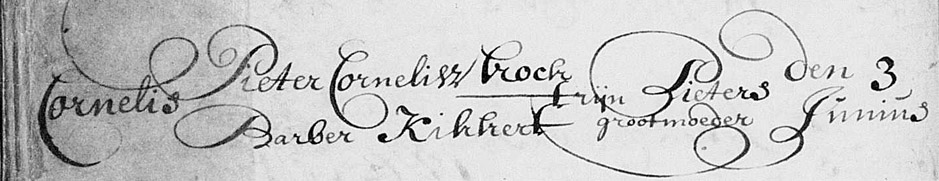 Cornelis Pieter Cornelisz Croch trijn Pieters den 3
Barber Kikkert grootmoeder Junius